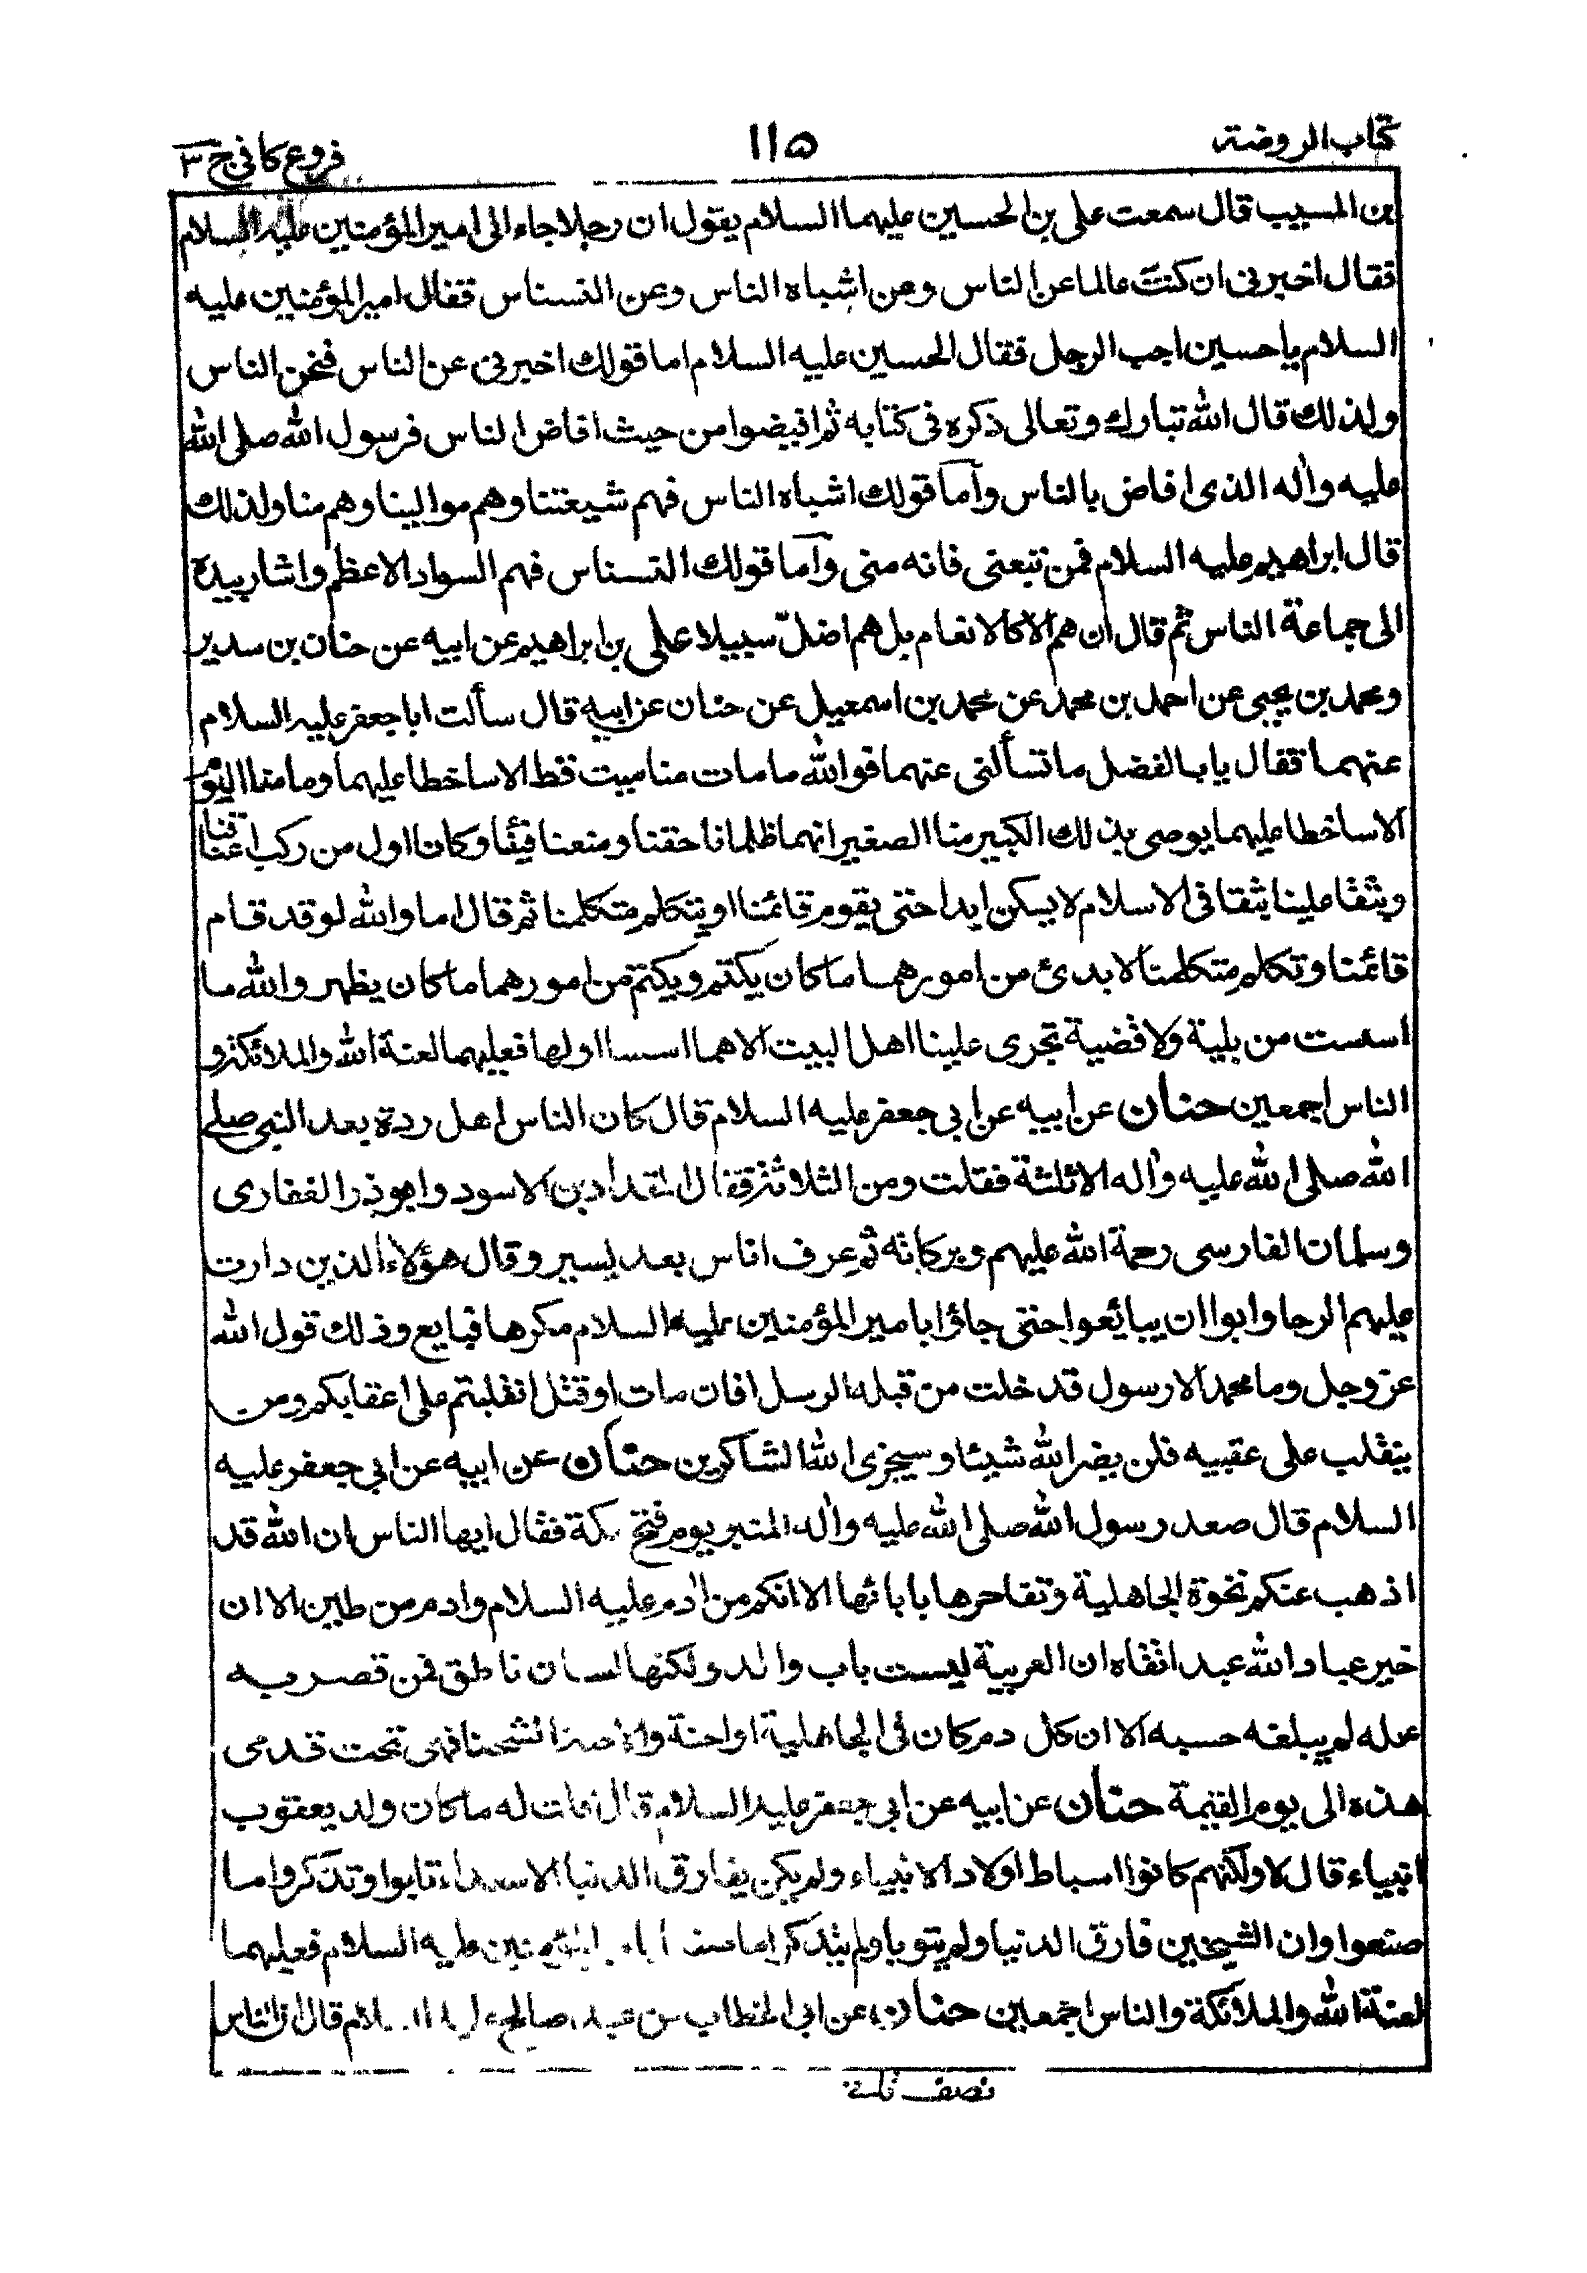 كتاب الروضة
١١٥
فروع كافى ج ٣
بن المسيب قال سمعت على بن الحسين عليهما السلام يقول ان رجلا جاء الى امير المؤمنين عليه السلام
فقال اخبرنى ان كنت عالما عن الناس وعن اشباه الناس وعن النسناس فقال امير المؤمنين عليه
السلام يا حسين اجب الرجل فقال الحسين عليه السلام اما قولك اخبرنى عن الناس فنحن الناس
ولذلك قال الله تبارك وتعالى ذكره فى كتابه ثم افيضوا من حيث افاض الناس فرسول الله صلى الله
عليه واله الذى افاض بالناس وأما قولك اشباه الناس فهم شيعتنا وهم موالينا وهم منا ولذلك
قال ابراهيم عليه السلام فمن تبعنى فانه منى وأما قولك النسناس فهم السواد الاعظم واشار بيده
الى جماعة الناس ثم قال ان هم الا كالانعام بل هم اضلّ سبيلا على بن ابراهيم عن ابيه عن حنان بن سدير
ومحمد بن يحيى عن احمد بن محمد عن محمد بن اسمعيل عن حنان عن ابيه قال سألت ابا جعفر عليه السلام
عنهما فقال يابا الفضل ما تسألنى عنهما فوالله ما مات منا ميت قط الا ساخطا عليهما وما منا اليوم
الا ساخطا عليهما يوصى بذلك الكبير منا الصغير انهما ظلمانا حقنا ومنعنا فيئنا وكانا اول من ركب اعناقنا
وبثقا علينا بثقا فى الاسلام لا يسكن ابدا حتى يقوم قائمنا او يتكلم متكلمنا ثم قال اما والله لو قد قام
قائمنا وتكلم متكلمنا لابدئ من امورهما ما كان يكتم ويكتم من امورهما ما كان يظهر والله ما
اسست من بلية ولا قضية تجرى علينا اهل البيت الا هما اسسا اولها فعليهما لعنة الله والملائكة و
الناس اجمعين حنان عن ابيه عن ابى جعفر عليه السلام قال كان الناس اهل ردة بعد النبى صلى
الله صلى الله عليه واله الا ثلثة فقلت ومن الثلاثة فقال المقداد بن الاسود وابوذر الغفارى
وسلمان الفارسى رحمة الله عليهم وبركاته ثم عرف اناس بعد يسير وقال هؤلاء الذين دارت
عليهم الرحا وابوا ان يبايعوا حتى جاؤا بامير المؤمنين عليه السلام مكرها فبايع وذلك قول الله
عز وجل وما محمد الا رسول قد خلت من قبله الرسل افان مات او قتل انقلبتم على اعقابكم ومن
ينقلب على عقبيه فلن يضر الله شيئا وسيجزى الله الشاكرين حنان عن ابيه عن ابى جعفر عليه
السلام قال صعد رسول الله صلى الله عليه واله المنبر يوم فتح مكة فقال ايها الناس ان الله قد
اذهب عنكم نخوة الجاهلية وتفاخرها بابائها الا انكم من ادم عليه السلام وادم من طين الا ان
خير عباد الله عبد اتقاه ان العربية ليست باب والد ولكنها لسان ناطق فمن قصر به
عمله لم يبلغه حسبه الا ان كل دم كان فى الجاهلية او احنة والاحنة الشحنا فهى تحت قدمى
هذه الى يوم القيمة حنان عن ابيه عن ابى جعفر عليه السلام قال قلت له ما كان ولد يعقوب
انبياء قال لا ولكنهم كانوا اسباط اولاد الانبياء ولم يكن يفارق الدنيا الا سعداء تابوا وتذكروا ما
صنعوا وان الشيخين فارقا الدنيا ولم يتوبا ولم يتذكرا ما صنعا بامير المؤمنين عليه السلام فعليهما
لعنة الله والملائكة والناس اجمعين حنان عن ابى الخطاب عن عبد صالح عليه السلام قال ان الناس